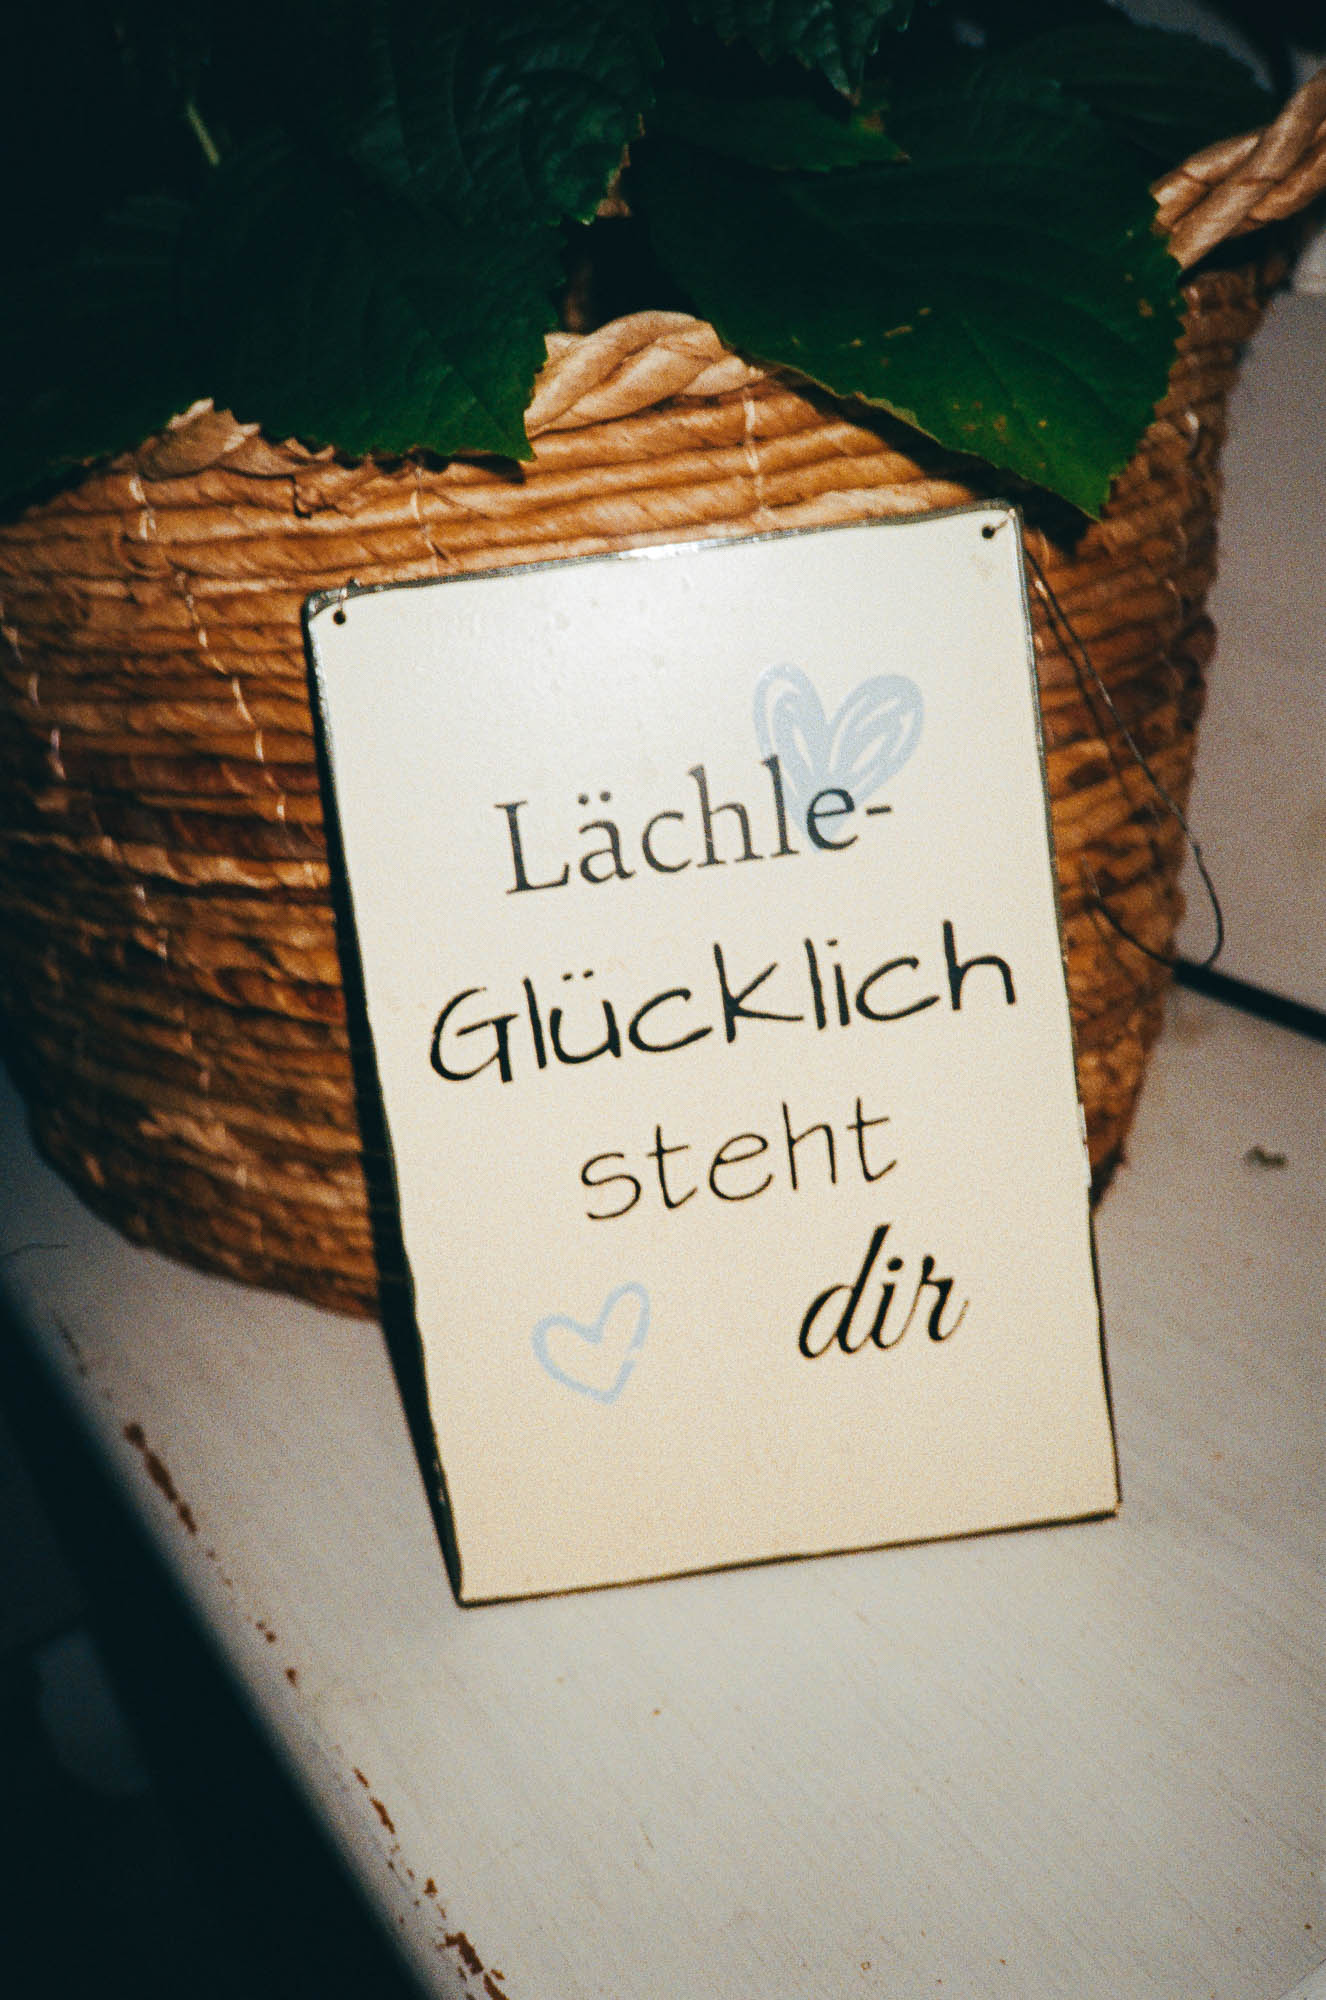 Lächle-
Glücklich
steht
dir